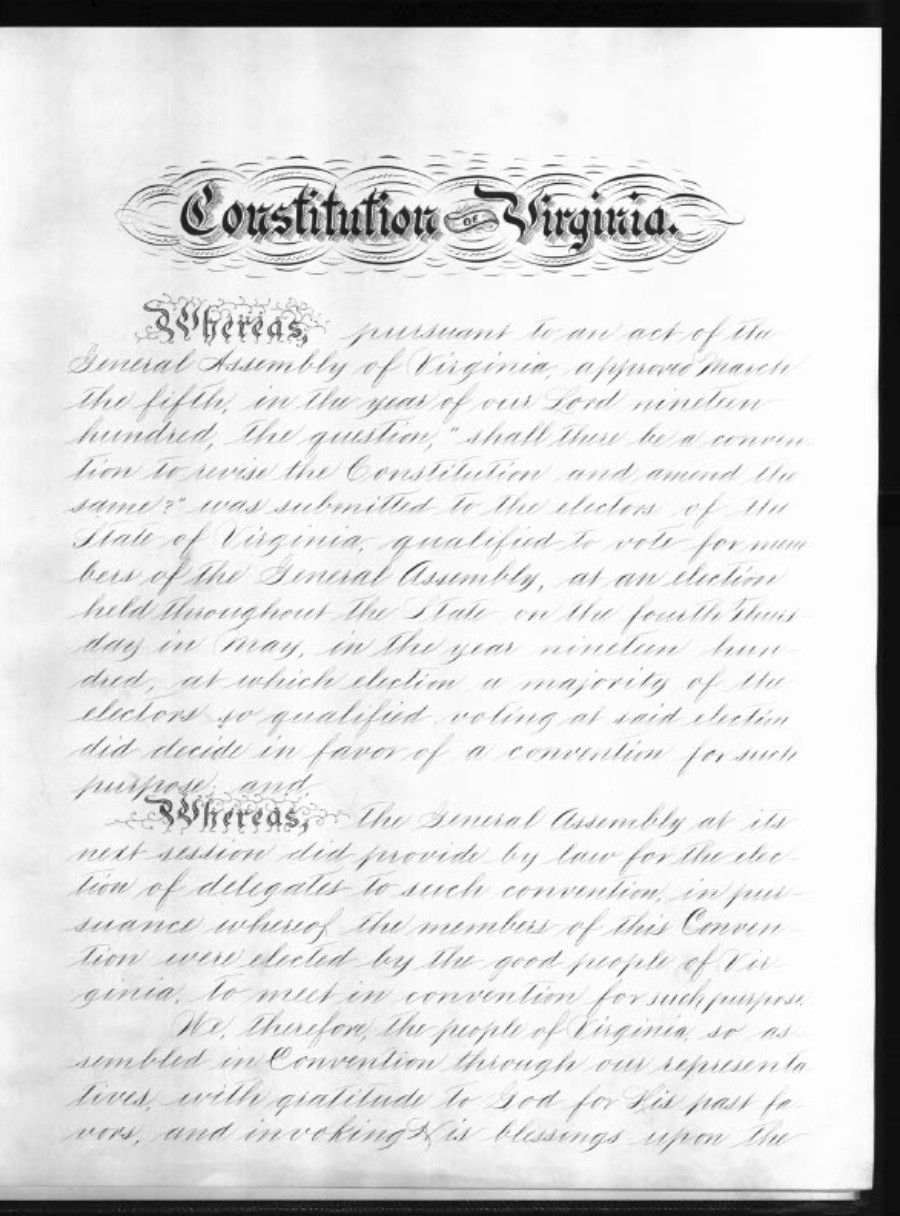 Constitution of Virginia.
Whereas, pursuant to an act of the
General Assembly of Virginia, approved March
the fifth, in the year of our Lord nineteen
hundred, the question, "shall there be a conven-
tion to revise the Constitution and amend the
same?" was submitted to the electors of the
State of Virginia, qualified to vote for mem
bers of the General Assembly, at an election
held throughout the State on the fourth Thurs-
day in May, in the year nineteen hun-
dred, at which election a majority of the
electors so qualified voting at said election
did decide in favor of a convention for such
purpose; and,
Whereas, the General Assembly at its
next session did provide by law for the elec-
tion of delegates to such convention, in pur-
suance whereof the members of this Conven-
tion were elected by the good people of Vir-
ginia, to meet in convention for such purpose.
We, therefore, the people of Virginia, so as-
sembled in Convention through our representa-
tives, with gratitude to God for His past fa-
vors, and invoking His blessings upon the